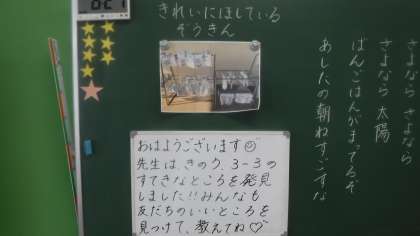 きれいにほしている
ぞうきん
おはようございます
先生は、きのう、3-3の
すてきなところを発見
しました!!みんなも
友だちのいいところを
見つけて、教えてね♡
さよなら さよなら
さよなら 太陽
ばんごはんがまってるぞ
あしたの朝ねすごすな